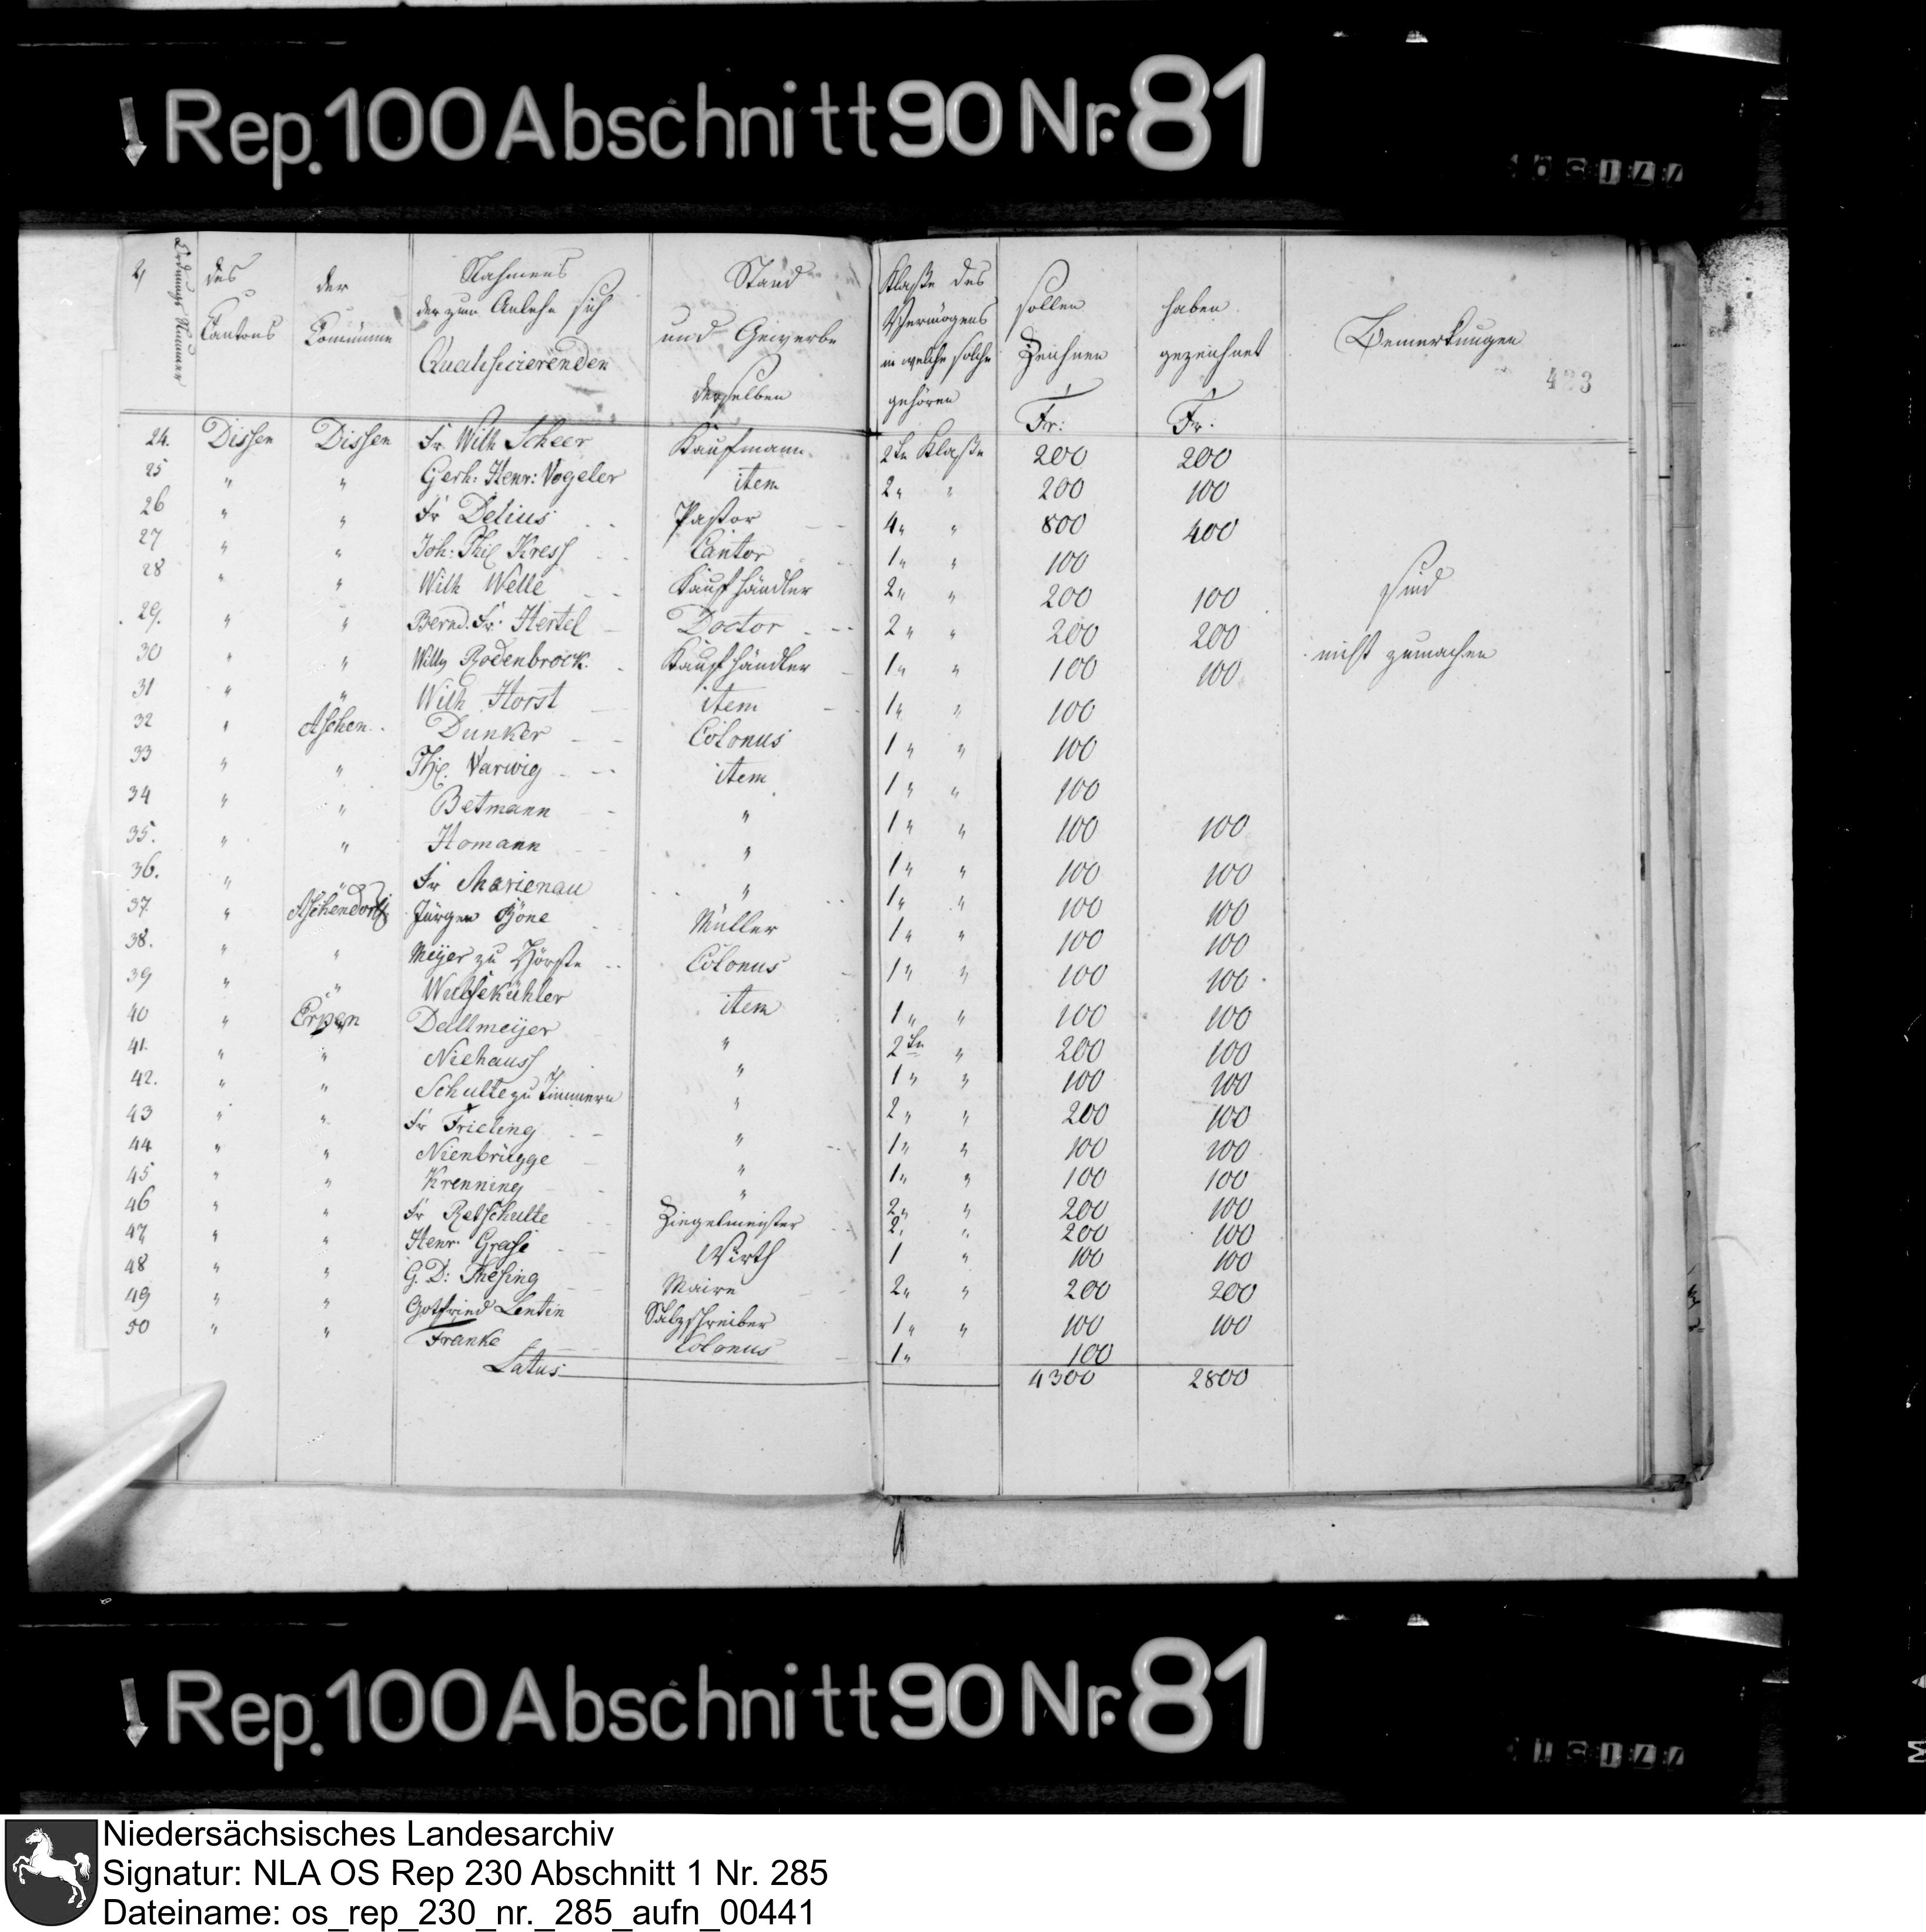 Rep. 100 Abschnitt 90 Nr. 81
2, Ordnungs Nummer des Cantons der Commüne Nahmens der zum Anlehe sich Qualificierenden Stand und Gewerbe derselben Klaße des Vermögens in welche solche gehören sollen Zeichnen Fr: haben gezeichnet Fr. Bemerkungen
423
24. Dissen Dissen Fr. Wilh Scheer Kaufmann 2te Klaße 200 200
25 " " Gerh: Henr: Vogeler item 2" " 200 100
26 " " Fr Delius Pastor 4" " 800 400
27 " " Joh: Phil Kress Cantor 1" " 100
28 " " Wilh Welle Kaufhändler 2" " 200 100 sind
29. " " Bernd. Fr. Hertel Doctor 2" " 200 200 nicht zumachen
30 " " Willy Rodenbrock. Kaufhändler 1" " 100 100
31 " " Wilh Horst item 1" " 100
32 " Aschen Dunker Colonus 1" " 100
33 " " Phil. Varwig item 1" " 100
34 " " Betmann " 1" " 100 100
35. " " Homann " 1" " 100 100
36. " " Fr Marienau " 1" " 100 100
37 " Aschendorf Jürgen Göne Müller 1" " 100 100
38. " " Meijer zu Hörste Colonus 1" " 100 100
39 " " Wulsekühler item 1" " 100 100
40 " Erpen Dallmeijer " 2te " 200 100
41. " " Niehauss " 1" " 100 100
42. " " Schulte zu Timmern " 2" " 200 100
43 " " Fr Frieling " 1" " 100 100
44 " " Nienbrügge " 1" " 100 100
45 " " Krenning " 2" " 200 100
46 " " Fr Retschulte Ziegelmeister 2" " 200 100
47 " " Henr. Grese Wirth 1 " 100 100
48 " " G. D: Thesing Maire 2" " 200 200
49 " " Gotfried Lentin Salzschreiber 1" " 100 100
50 " " Franke Colonus 1" 100
Latus 4300 2800
Rep. 100 Abschnitt 90 Nr. 81
Niedersächsisches Landesarchiv
Signatur: NLA OS Rep 230 Abschnitt 1 Nr. 285
Dateiname: os_rep_230_nr._285_aufn_00441